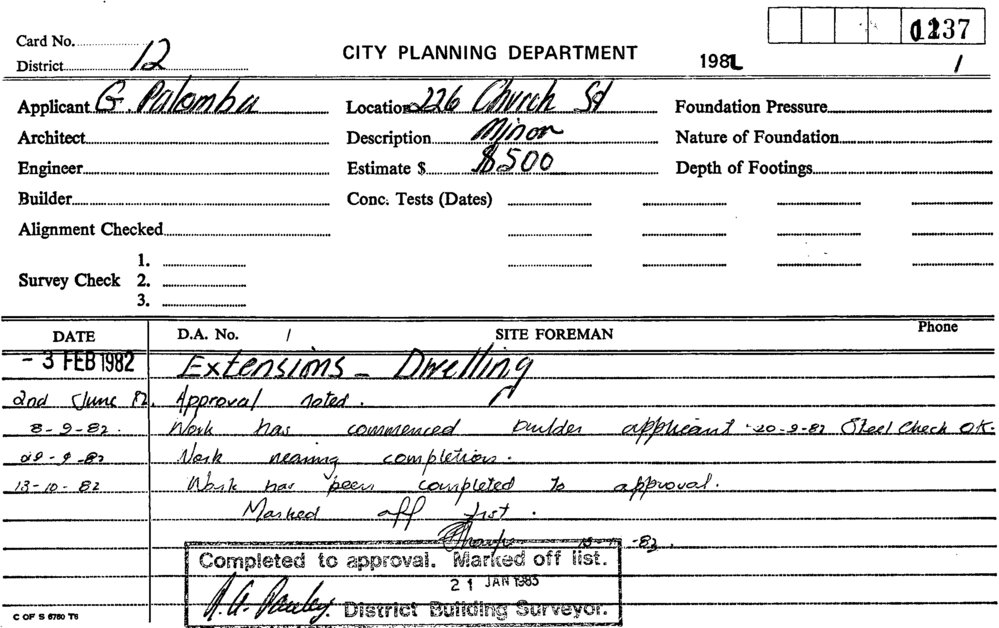 1237
Card No.
District 12
CITY PLANNING DEPARTMENT
1982 /
Applicant G. Palomba
Location 226 Church St
Foundation Pressure
Architect
Description Minor
Nature of Foundation
Engineer
Estimate $ $500
Depth of Footings
Builder
Conc. Tests (Dates)
Alignment Checked
1.
Survey Check 2.
3.
DATE D.A. No. / SITE FOREMAN Phone
- 3 FEB 1982 Extensions - Dwelling
2nd June 82. Approval noted.
8-9-82. Work has commenced builder applicant 20-9-82 Steel Check O.K.
29-9-82 Work nearing completion.
13-10-82 Work has been completed to approval.
Marked off list.
-82.
Completed to approval. Marked off list.
21 JAN 1983
District Building Surveyor.
C OF S 6760 T6